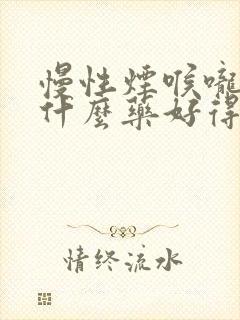 慢性煙喉嚨
什麼藥好得
情终流水